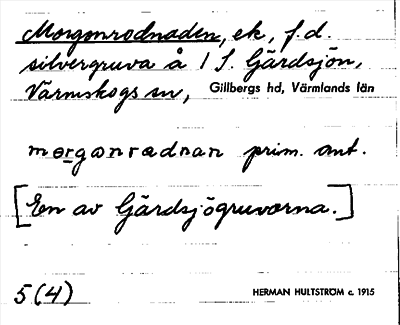 Morgonrodnaden, ek, f.d.
silvergruva å 1 S. Gärdsjön,
Värmskogs sn, Gillbergs hd, Värmlands län
morgonradnan prim. ant.
[En av Gärdsjögruvorna.]
5(4)
HERMAN HULTSTRÖM c. 1915